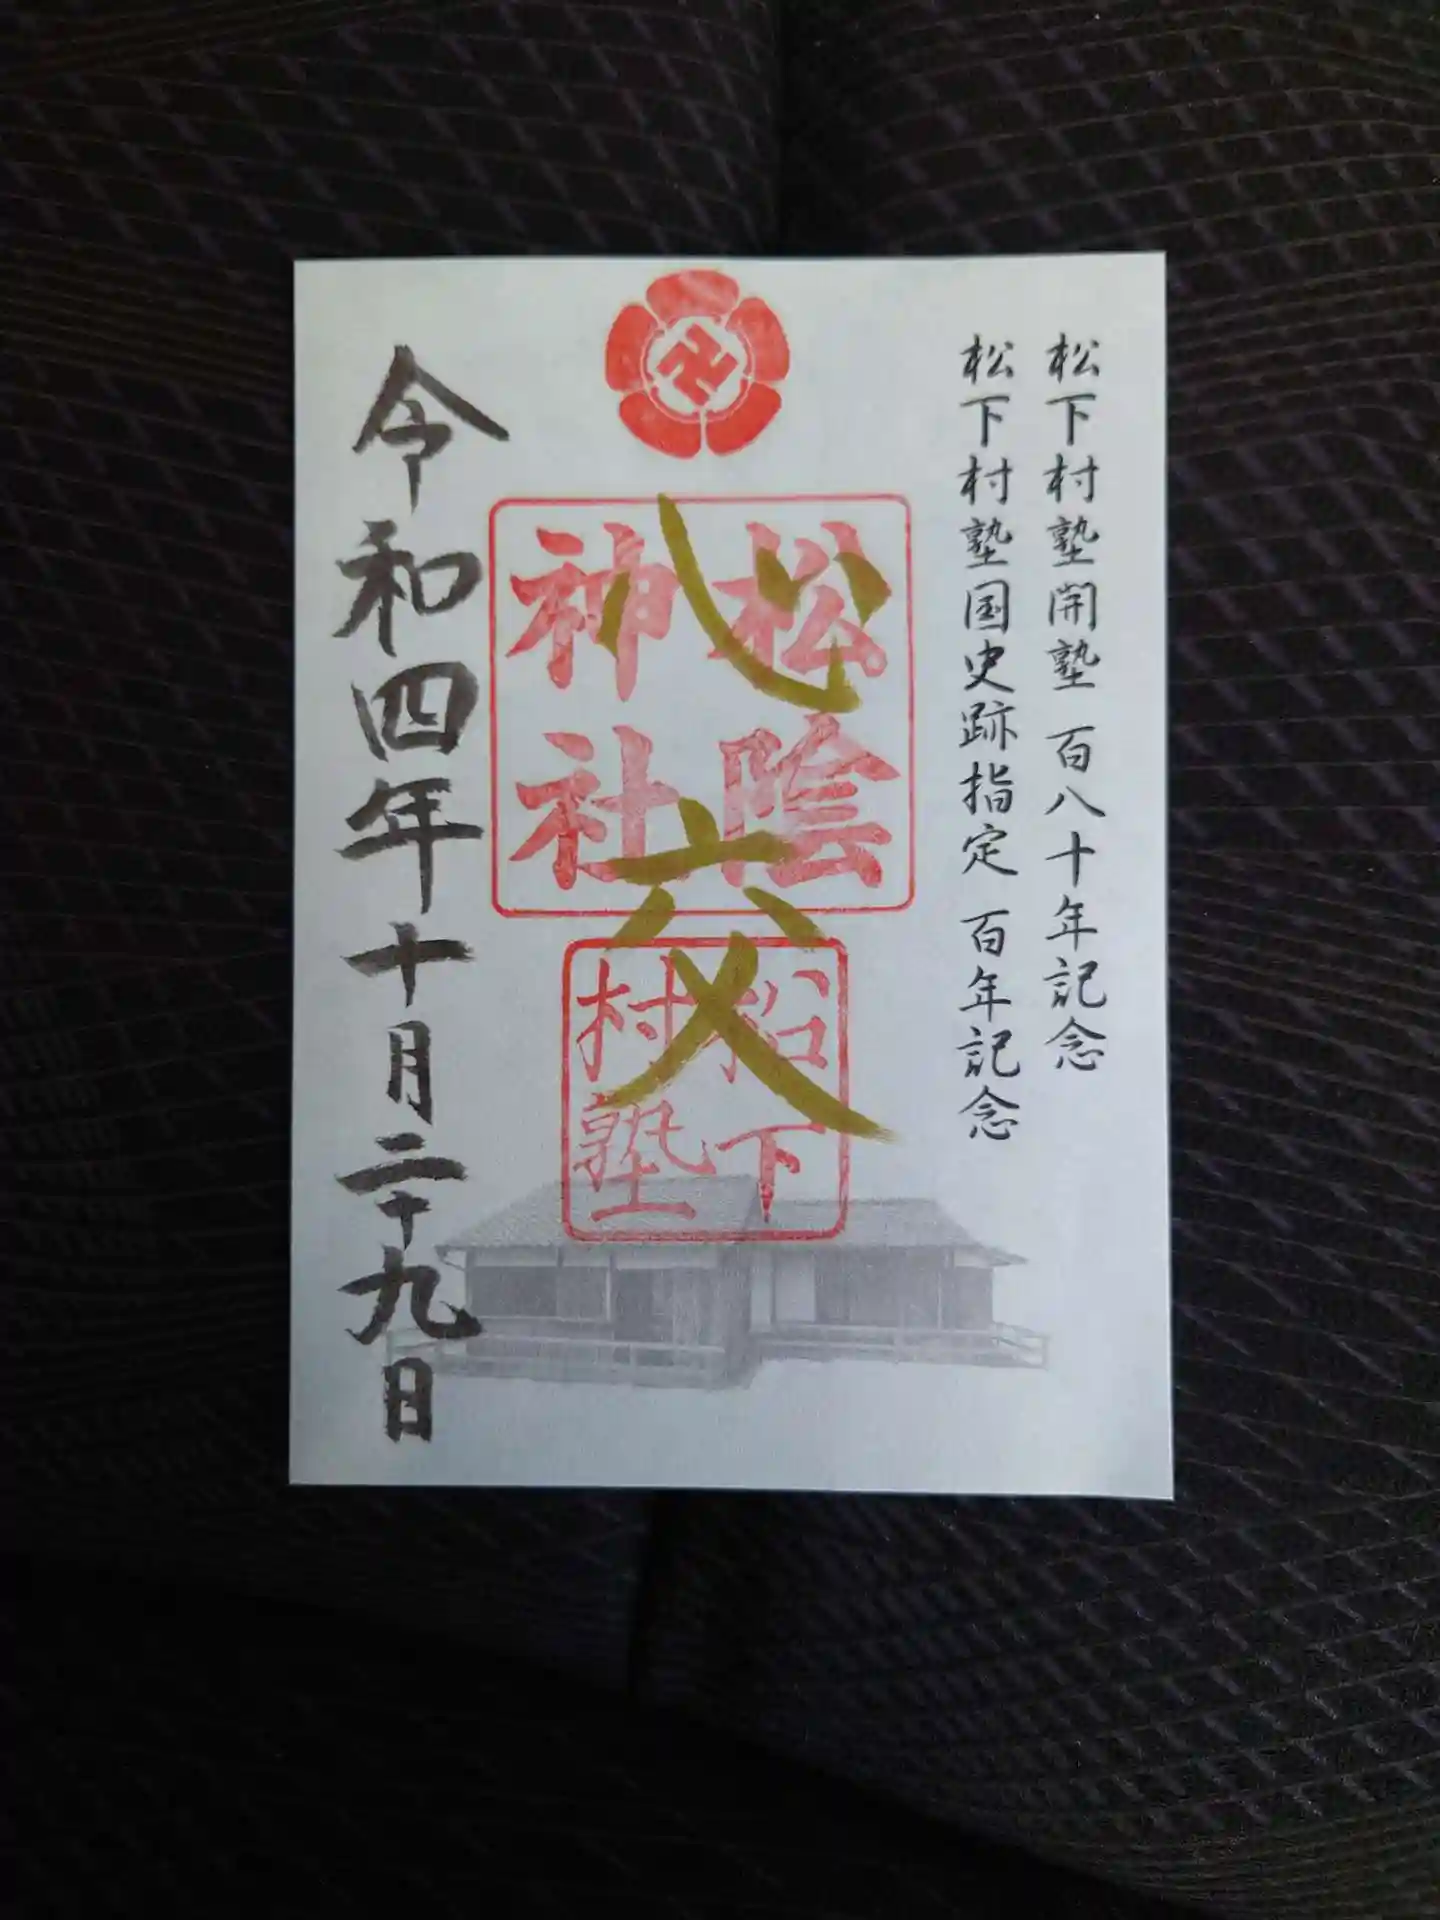 松下村塾開塾 百八十年記念
松下村塾国史跡指定 百年記念
心交
松陰
神社
松下
村塾
令和四年十月二十九日